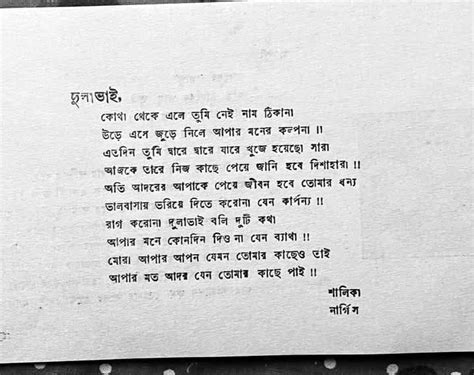 দুলাভাই,
কোথা থেকে এলে তুমি নেই নাম ঠিকানা
উড়ে এসে জুড়ে নিলে আপার মনের কল্পনা !!
এতদিন তুমি দ্বারে দ্বারে যারে খুজে হয়েছো সারা
আজকে তারে নিজ কাছে পেয়ে জানি হবে দিশাহারা !!
অতি আদরের আপাকে পেয়ে জীবন হবে তোমার ধন্য
ভালবাসায় ভরিয়ে দিতে করোনা যেন কার্পন্য !!
রাগ করোনা দুলাভাই বলি দুটি কথা
আপার মনে কোনদিন দিও না যেন ব্যাথা !!
মোরা আপার আপন যেমন তোমার কাছেও তাই
আপার মত আদর যেন তোমার কাছে পাই !!
শালিকা
নার্গিস